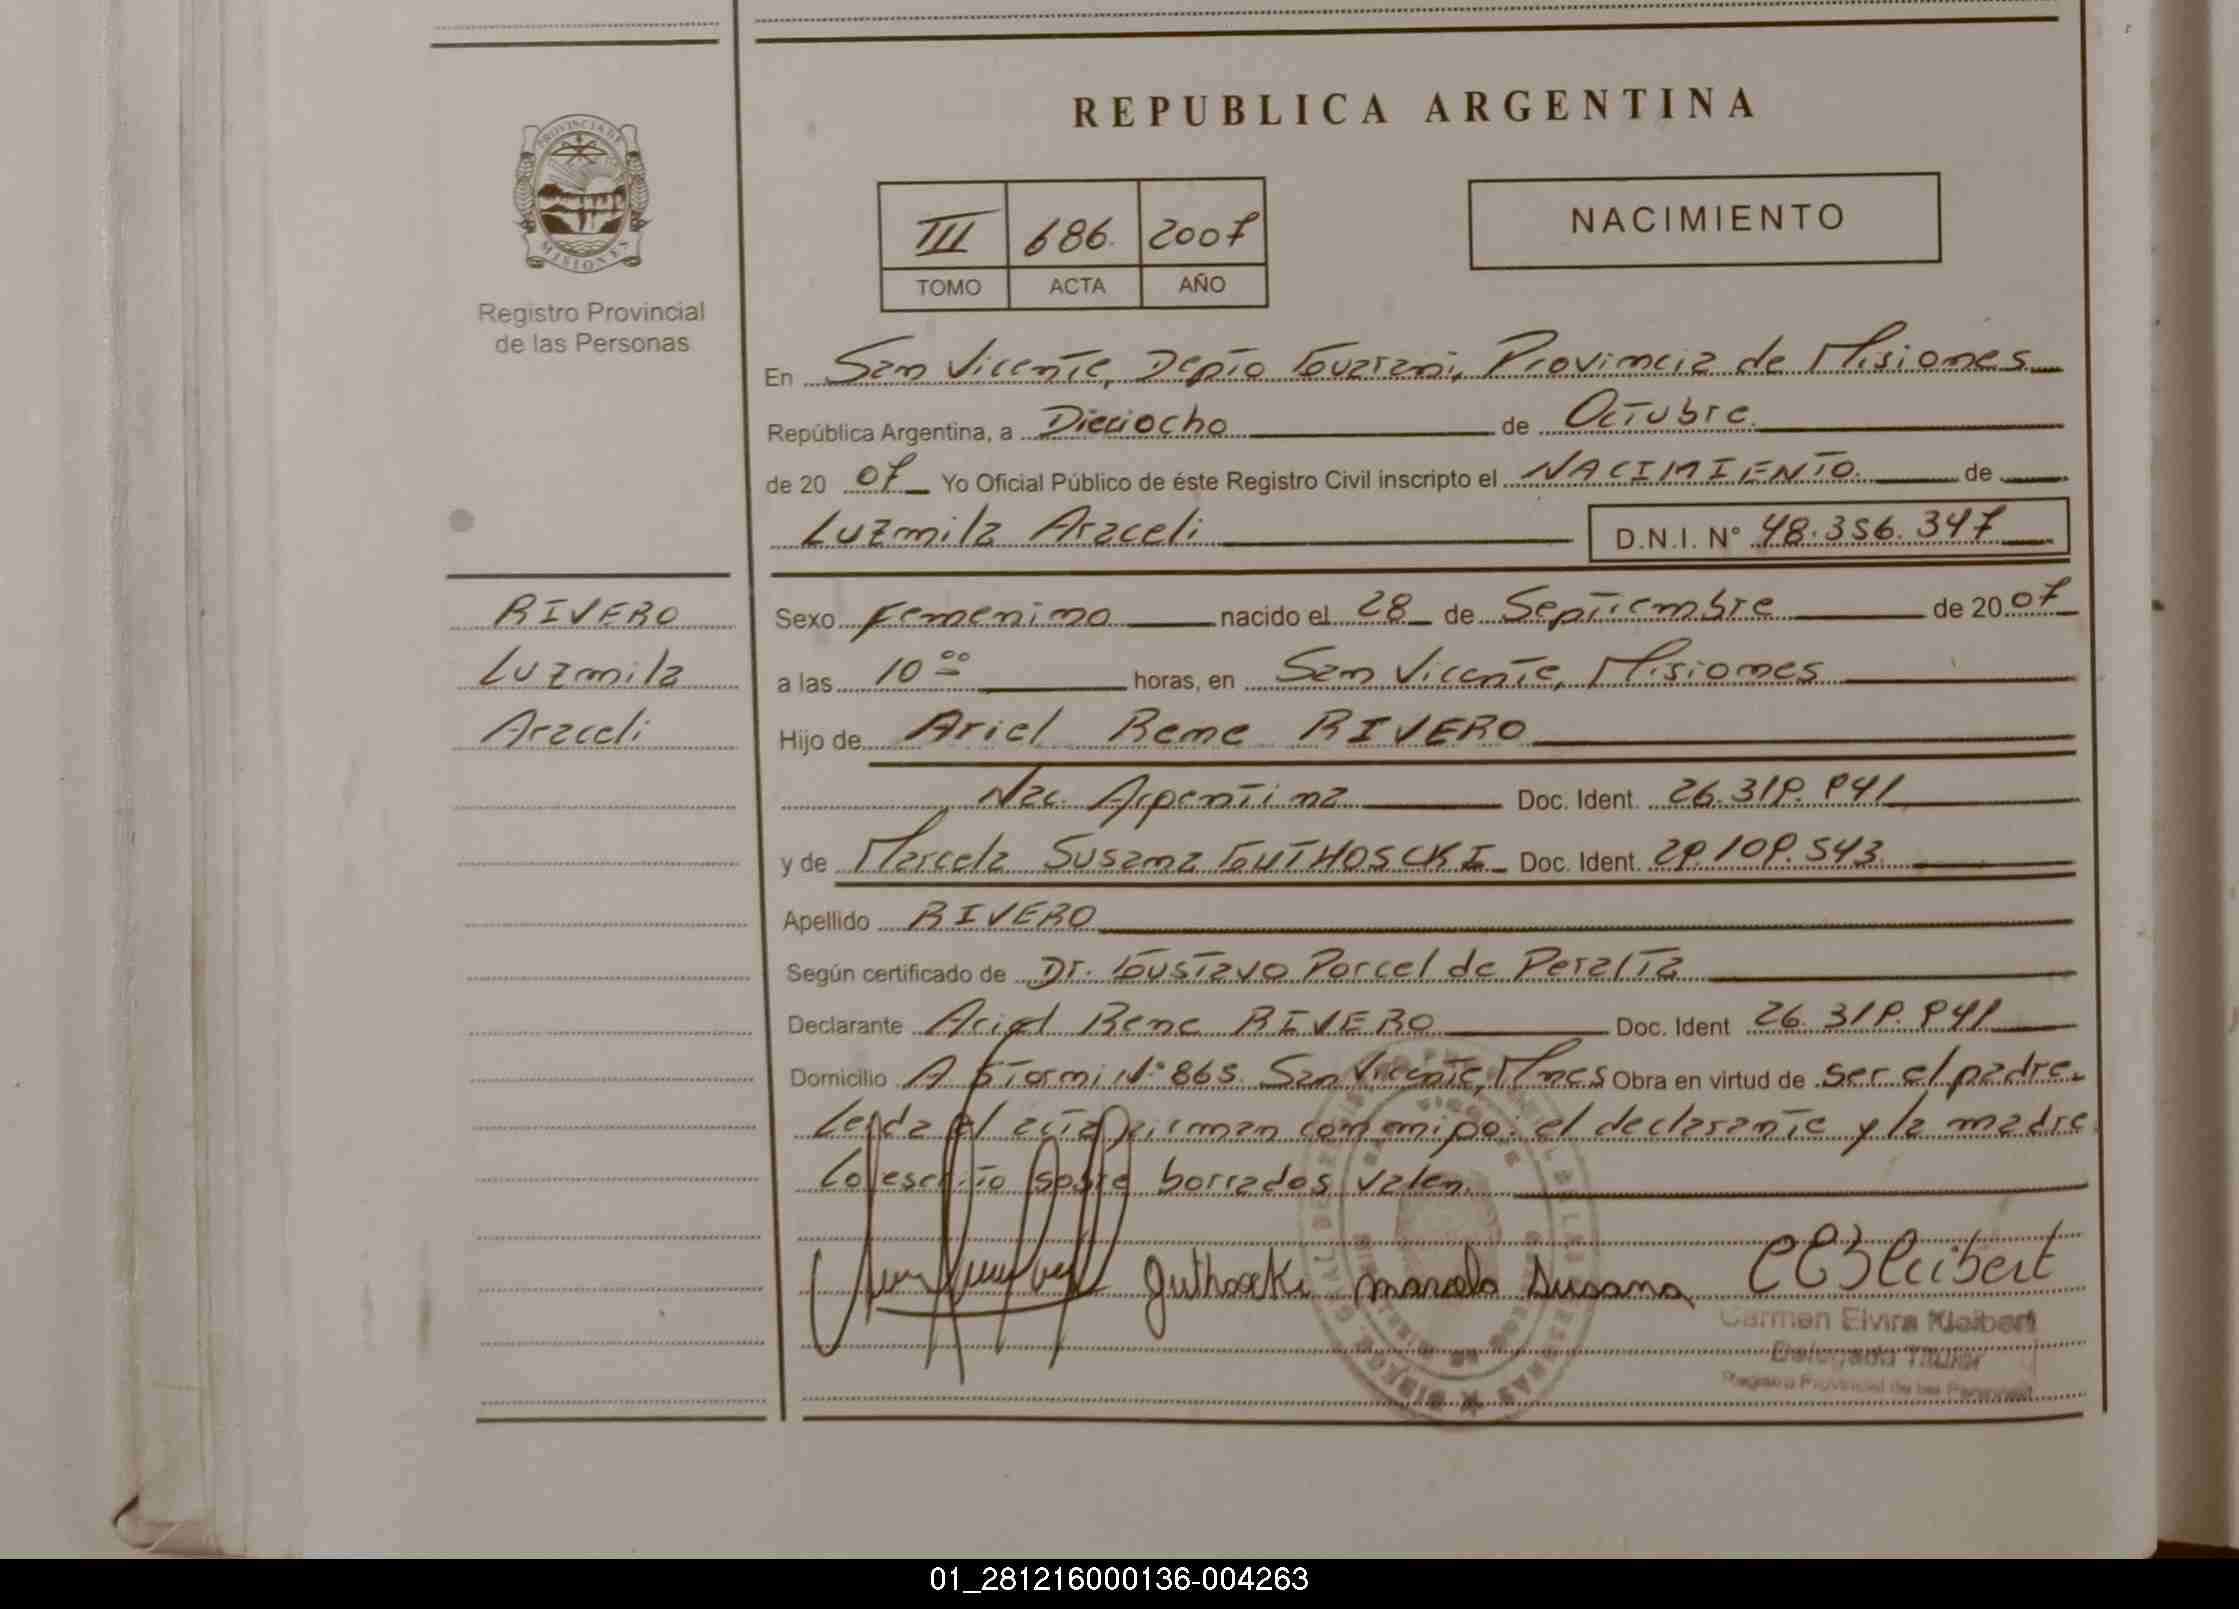 REPUBLICA ARGENTINA
PROVINCIA DE
MISIONES
Registro Provincial
de las Personas
III 686. 2007
TOMO ACTA AÑO
NACIMIENTO
En San Vicente, Depto Guarani, Provincia de Misiones
República Argentina, a Dieciocho de Octubre
de 20 07 Yo Oficial Público de éste Registro Civil inscripto el NACIMIENTO de
Luzmila Araceli D.N.I. N° 48.356.347
RIVERO
Luzmila
Araceli
Sexo Femenino nacido el 28 de Septiembre de 20 07
a las 10 00 horas, en San Vicente, Misiones
Hijo de Ariel Rene RIVERO
Nac. Argentina Doc. Ident. 26.319.941
y de Marcela Susana GUTHOSCKI Doc. Ident. 29.109.543
Apellido RIVERO
Según certificado de Dr. Gustavo Porcel de Peralta
Declarante Ariel Rene RIVERO Doc. Ident 26.319.941
Domicilio A Storni N° 865. San Vicente, Mnes Obra en virtud de ser el padre.
Leida el acta firman conmigo: el declarante y la madre.
Lo escrito sobre borrados valen.
Guthoscki Marcela Susana CEKleibert
Carmen Elvira Kleibert
Delegada Titular
Registro Provincial de las Personas
01_281216000136-004263